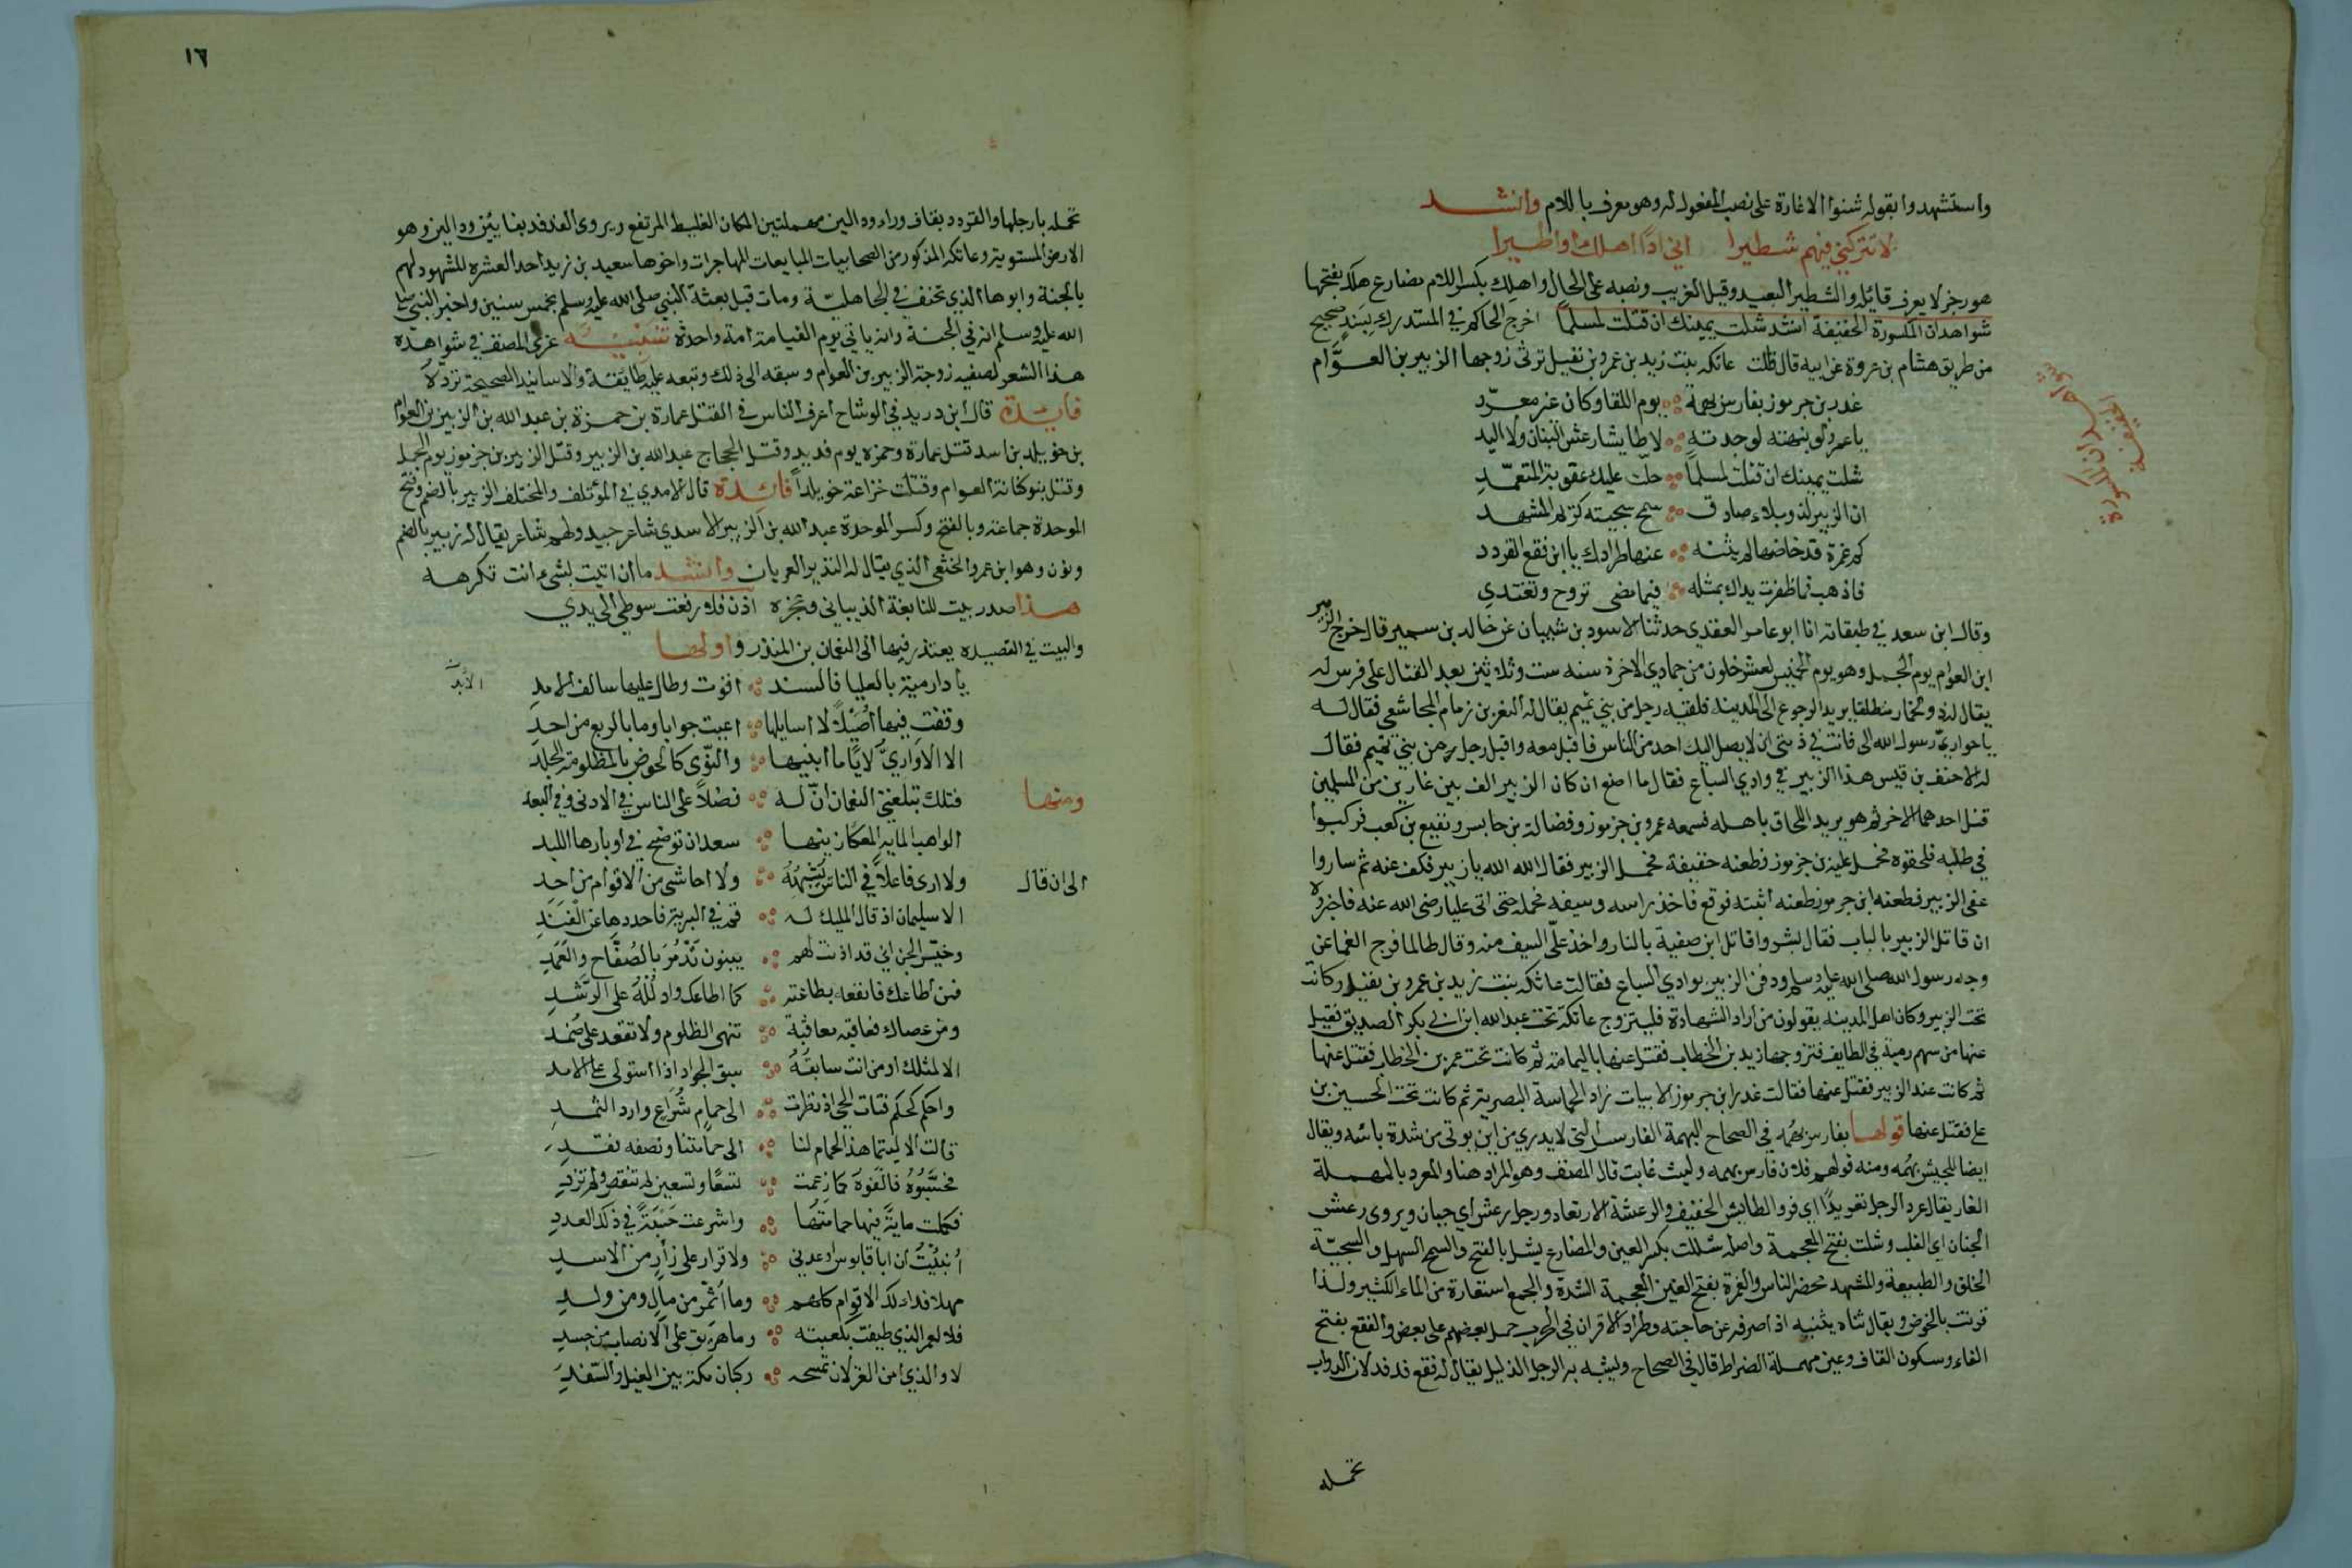 واستشهدوا بقوله شنوا الاغارة على نصب المفعول له وهو معرف باللام وانشد
لا تتركني فيهم شطيرا اني اذا اهلك او اطيرا
هو رجز لا يعرف قائله والشطير البعيد وقيل الغريب ونصبه على الحال واهلك بكسر اللام مضارع هلك بفتحها
شواهد ان المكسورة الخفيفة انشد شلت يمينك ان قتلت لمسلما اخرج الحاكم في المستدرك بسند صحيح
من طريق هشام بن عروة عن ابيه قال قالت عاتكه بنت زيد بن عمرو بن نفيل ترثي زوجها الزبير بن العوَّام
غدر بن جرموز بفارس بهمة يوم اللقا وكان غير معرّد
يا عمرو لو نبهته لوجدته لا طايشا رعش البنان ولا اليد
شلت يمينك ان قتلت لمسلماً حلت عليك عقوبة المتعمّدِ
ان الزبير لذو بلاء صادق سمح سجيته كريم المشهد
كم غمرة قد خاضها لم يثنه عنها طرادك يا ابن فقع القردد
فاذهب فما ظفرت يداك بمثله فيما مضى تروح وتغتدي
وقال ابن سعد في طبقاته انا ابو عامر العقدي حدثنا الاسود بن شيبان عن خالد بن سمير قال خرج الزبير
ابن العوام يوم الجمل وهو يوم الخميس لعشر خلون من جمادي الاخرة سنه ست وثلاثين بعد القتال على فرس له
يقال له ذو الخمار منطلقا يريد الرجوع الى المدينة فلقيه رجل من بني تميم يقال له النعر بن زمام المجاشعي فقال له
يا حواري رسول الله الى فانت في ذمتي ان لا يصل اليك احد من الناس فاقبل معه واقبل رجل من بني تميم فقال
له الاحنف بن قيس هذا الزبير في وادي السباع فقال ما اصنع ان كان الزبير الف بين غارين من المسلمين
قتل احدهما الاخر ثم هو يريد اللحاق باهله فسمعه عمرو بن جرموز وفضالة بن حابس ونفيع بن كعب فركبوا
في طلبه فلحقوه فحمل عليه بن جرموز فطعنه طعنة خفيفة فحمل الزبير فقال الله الله يا زبير فكف عنه ثم ساروا
عفى الزبير فطعنه ابن جرموز طعنه اثبته فوقع فاخذ براسه وسيفه فحمله حتى اتى عليا رضى الله عنه فاخبروه
ان قاتل الزبير بالباب فقال بشروا قاتل ابن صفية بالنار واخذ عليّ السيف منه وقال طالما فرج الغما عن
وجه رسول الله صلى الله عليه وسلم ودفن الزبير بوادي السباع فقالت عاتكه بنت زيد بن عمرو بن نفيل وكانت
تحت الزبير وكان اهل المدينه يقولون من اراد الشهادة فليتزوج عاتكة تحت عبد الله ابن ابي بكر الصديق فقتل
عنها من سهم رميه في الطايف فتزوجها زيد بن الخطاب فقتل عنها باليمامة ثم كانت تحت عمر بن الخطاب فقتل عنها
ثم كانت عند الزبير فقتل عنها فقالت غدر ابن جرموز الابيات زاد الحماسة البصرية ثم كانت تحت الحسين بن
على فقتل عنها قولها بفارس بهمه في الصحاح البهمة الفارس الذي لا يدري من اين يوتى من شدة باسه ويقال
ايضا للجيش بهمه ومنه قولهم فلان فارس بهمه وليث غابت قال المصنف وهو المراد هنا والمعرد بالمهملة
الفار يقال عرد الرجل تعريداً اي فر والطايش الخفيف والرعشة الارتعاد ورجل رعش اي جبان ويروى رعش
الجنان اي القلب وشلت بفتح المعجمة واصله شللت بكسر العين والمضارع يشل بالفتح والسمح السهل والسجيّة
الخلق والطبيعة والمشهد محضر الناس والغمرة بفتح الغين المعجمة الشدة والجمع استعارة من الماء الكثير ولذا
قرنت بالخوض ويقال ثناه يثنيه اذا صرفه عن حاجته وطراد الاقران في الحرب حمل بعضهم على بعض والفقع بفتح
الفاء وسكون القاف وعين مهملة الضراط قال في الصحاح ويشبه به الرجل الذليل يقال له فقع قدفد لان الدواب
تحمله
شواهد ان المكسورة
الخفيفة
١٦
تحمله بارجلها والقردد بقاف وراء ودالين مهملتين المكان الغليظ المرتفع ويروى الفدفد بفائين ودالين وهو
الارض المستوية وعاتكه المذكور من الصحابيات المبايعات المهاجرات واخوها سعيد بن زيد احد العشره المشهود لهم
بالجنة وابوها الذي تحنف في الجاهليّة ومات قبل بعثة النبي صلى الله عليه وسلم بخمس سنين واخبر النبي صلى
الله عليه وسلم انه في الجنة وانه ياتي يوم القيامة امة واحدة تنبيه عزى المصنف في شواهده
هذا الشعر لصفيه زوجة الزبير بن العوام وسبقه الى ذلك وتبعه عليه طايفة والاسانيد الصحيحة ترد لا
فايدة قال ابن دريد في الوشاح اعرف الناس في القتل عمارة بن حمزة بن عبد الله بن الزبير بن العوام
بن خويلد بن اسد قتل عمارة وحمزه يوم قديد وقتل الحجاج عبد الله بن الزبير وقتل الزبير بن جرموز يوم الجمل
وقتل بنو كنانة العوام وقتلت خزاعة خويلداً فائدة قال الامدي في المؤتلف والمختلف الزبير بالضم وفتح
الموحدة جماعة وبالفتح وكسر الموحدة عبد الله بن الزبير الاسدي شاعر جيد ولهم شاعر يقال له زبير بالضم
ونون وهو ابن عمرو الخثعمي الذي يقال له النذير العريان وانشد ما ان اتيت بشيء انت تكرهه
هذا صدر بيت للنابغة الذبياني وعجزه اذن فلا رفعت سوطي الى يدي
والبيت في القصيده يعتذر فيها الى النعمان بن المنذر واولها
يا دار مية بالعليا فالسند اقوت وطال عليها سالف الامد
الابد
وقفت فيها اُصَيْلاً لا اسايلها اعيت جوابا وما بالربع من احد
الا الاوَاريَّ لَايًا ما ابينها والنّوى كالحوض بالمظلومة الجلد
ومنها فتلك تبلغني النعمان انّ له فضلاً على الناس في الادنى وفي البعد
الواهب الماية المعكا زينها سعدان توضح في اوبارها اللبد
الى ان قال ولا ارى فاعلاً في الناس يُشْبِهُهُ ولا احاشى من الاقوام من احد
الا سليمان اذ قال المليك له قم في البرية فاحددها عن الفند
وخيّس الجن اني قد اذنت لهم يبنون تَدْمُرَ بالصُفّاح والعَمَد
فمن اطاعك فانفعه بطاعته كما اطاعك وادلُلْهُ على الرشد
ومن عصاك فعاقبه معاقبة تنهى الظلوم ولا تقعد على ضمد
الا لمثلك او من انت سابقُهُ سبق الجواد اذا استولى على الامد
واحكم كحكم فتات الحي اذ نظرت الى حمام شُرَاعٍ وارد الثمد
قالت الا ليتما هذا الحمام لنا الى حمامتنا ونصفه فقد
فحسّبوه فالفوه كما زعمت تسعًا وتسعين لم تنقص ولم تزد
فكملت مايةً فيها حمامتها واسرعت حَسْبَةً في ذلك العدد
أُنبِئْتُ ان ابا قابوس اوعدني ولا قرار على زأرٍ من الاسد
مهلا فداء لك الاقوام كلهم وما أثمّر من مالٍ ومن ولد
فلا لعمر الذي طيفت بكعبته وما هريق على الانصاب من جسد
لا والذي امن الغزلان تمسحه ركبان مكة بين الغيل والسّعد